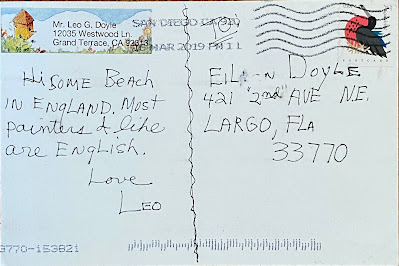 Mr. Leo G. Doyle
12035 Westwood Ln.
Grand Terrace, CA 92313
SAN DIEGO CA 920
MAR 2019 PM 1 L
POSTCARD
Hi SOME BEACH
IN ENGLAND. MOST
PAINTERS I like
are ENGLISH.
Love
LEO
DOYLE
421 "2nd" AVE N.E.
LARGO, FLA
33770
3770-153821